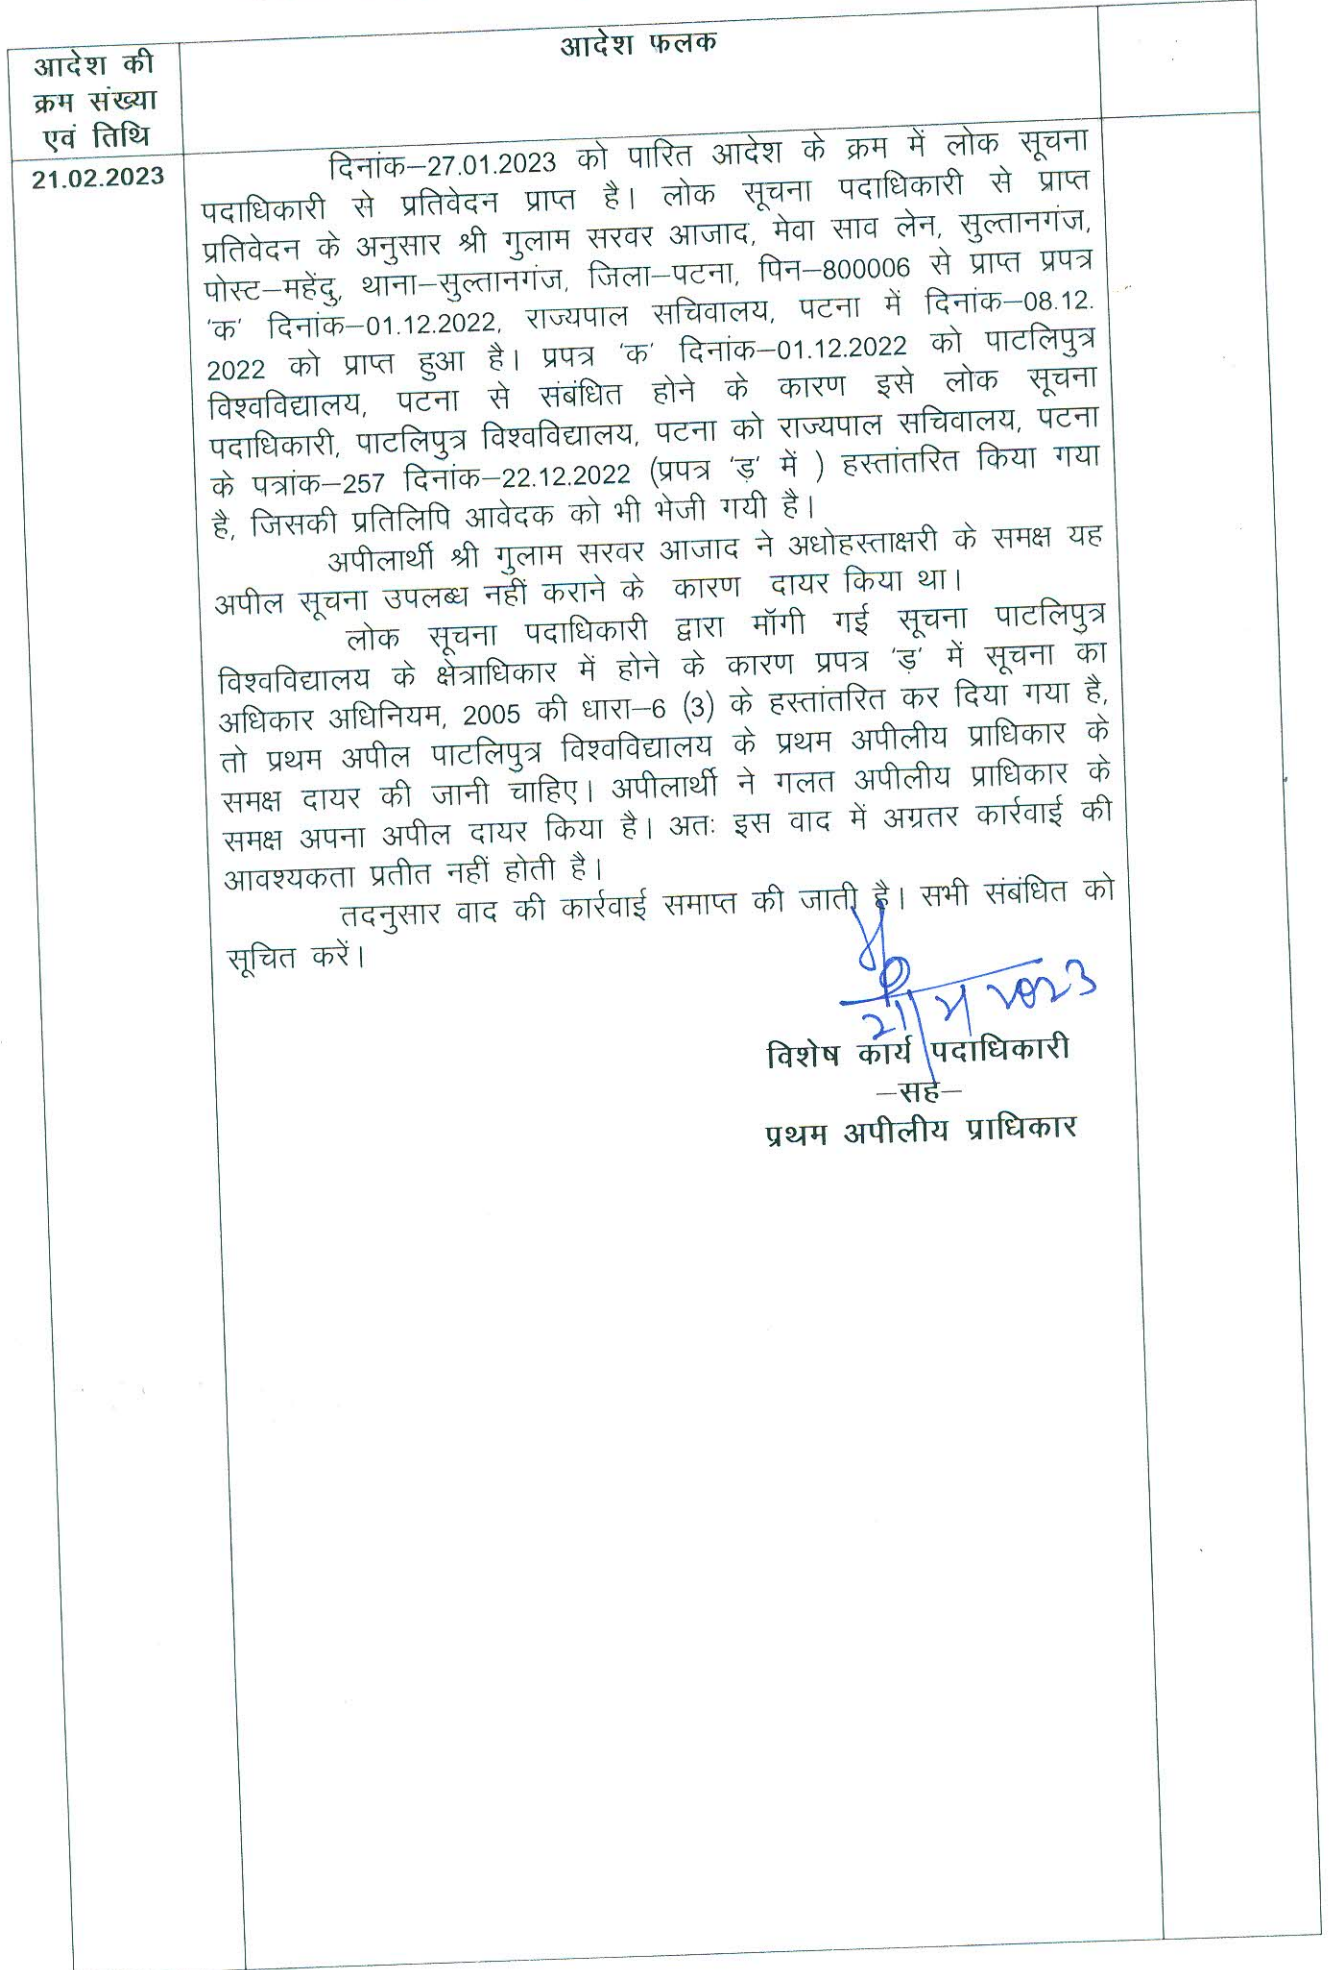 आदेश की
क्रम संख्या
एवं तिथि
आदेश फलक
21.02.2023
दिनांक–27.01.2023 को पारित आदेश के क्रम में लोक सूचना
पदाधिकारी से प्रतिवेदन प्राप्त है। लोक सूचना पदाधिकारी से प्राप्त
प्रतिवेदन के अनुसार श्री गुलाम सरवर आजाद, मेवा साव लेन, सुल्तानगंज,
पोस्ट–महेंदु, थाना–सुल्तानगंज, जिला–पटना, पिन–800006 से प्राप्त प्रपत्र
'क' दिनांक–01.12.2022, राज्यपाल सचिवालय, पटना में दिनांक–08.12.
2022 को प्राप्त हुआ है। प्रपत्र 'क' दिनांक–01.12.2022 को पाटलिपुत्र
विश्वविद्यालय, पटना से संबंधित होने के कारण इसे लोक सूचना
पदाधिकारी, पाटलिपुत्र विश्वविद्यालय, पटना को राज्यपाल सचिवालय, पटना
के पत्रांक–257 दिनांक–22.12.2022 (प्रपत्र 'ड़' में ) हस्तांतरित किया गया
है, जिसकी प्रतिलिपि आवेदक को भी भेजी गयी है।
अपीलार्थी श्री गुलाम सरवर आजाद ने अधोहस्ताक्षरी के समक्ष यह
अपील सूचना उपलब्ध नहीं कराने के कारण दायर किया था।
लोक सूचना पदाधिकारी द्वारा मॉगी गई सूचना पाटलिपुत्र
विश्वविद्यालय के क्षेत्राधिकार में होने के कारण प्रपत्र 'ड़' में सूचना का
अधिकार अधिनियम, 2005 की धारा–6 (3) के हस्तांतरित कर दिया गया है,
तो प्रथम अपील पाटलिपुत्र विश्वविद्यालय के प्रथम अपीलीय प्राधिकार के
समक्ष दायर की जानी चाहिए। अपीलार्थी ने गलत अपीलीय प्राधिकार के
समक्ष अपना अपील दायर किया है। अतः इस वाद में अग्रतर कार्रवाई की
आवश्यकता प्रतीत नहीं होती है।
तदनुसार वाद की कार्रवाई समाप्त की जाती है। सभी संबंधित को
सूचित करें।
विशेष कार्य पदाधिकारी
–सह–
प्रथम अपीलीय प्राधिकार